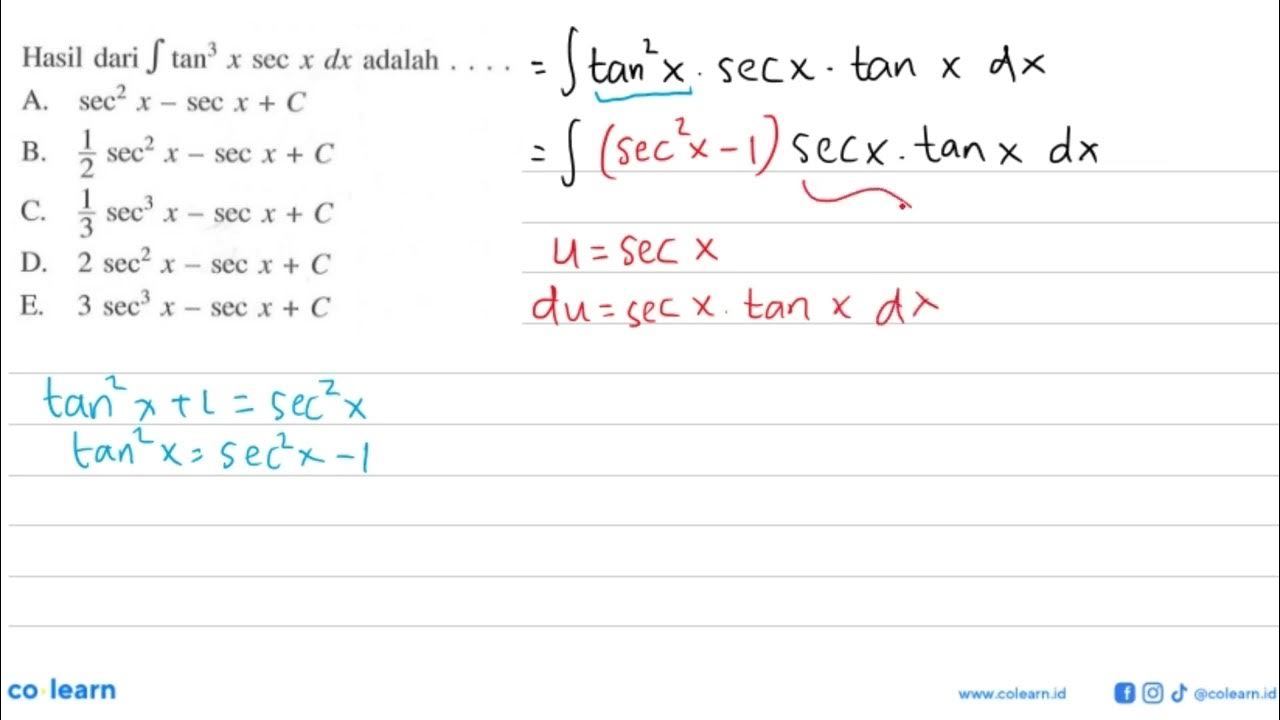 Hasil dari ∫ tan³ x sec x dx adalah . . . .
A. sec² x – sec x + C
B. 1/2 sec² x – sec x + C
C. 1/3 sec³ x – sec x + C
D. 2 sec² x – sec x + C
E. 3 sec³ x – sec x + C
= ∫ tan²x · secx · tan x dx
= ∫ (sec²x – 1) secx · tanx dx
u = sec x
du = sec x · tan x dx
tan²x + 1 = sec²x
tan²x = sec²x – 1
co·learn
www.colearn.id @colearn.id